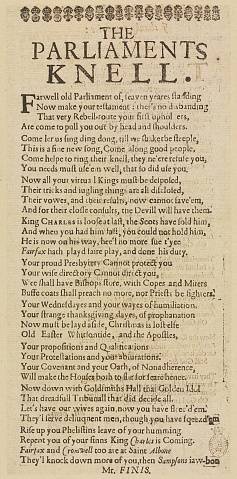 THE
PARLIAMENTS
KNELL.
Farwell old Parliament of, seaven yeares standing
Now make your testament: ther's no disbanding
That very Rebell-route your first upholders,
Are come to pull you out by head and shoulders.
Come let us sing ding dong, till we strike the steeple,
This is a fine new song, Come along good people,
Come helpe to ring their knell, they ne're refuse you,
You needs must use em well, that so did use you,
Now all your virtuall Kings must be deposed,
Their tricks and jugling things are all disclosed,
Their vowes, and their results, now cannot save'em,
And for their close consults, the Devill will have them.
King CHARLES is loose at last, the Scots have sold him,
And when you had him fast, you could not hold him,
He is now on his way, hee'l no more sue t'yee
Fairfax hath playd faire play, and done his duty.
Your proud Presbyters Cannot protect you
Your wise directory Cannot direct you,
Wee shall have Bishops store, with Copes and Miters
Buffe coats shall preach no more, nor Priests be fighters.
Your Wednesdayes and your wayes of humiliation.
Your strange thanksgiving slayes, of prophanation
Now must be layd aside, Christmas is lost else
Old Easter Whitsontide, and the Apostles,
Your propositions and Qualifications
Your Protestations and your abjurations.
Your Covenant and your Oath, of Nonadherence,
Will make the Houses both to
Now down with Goldsmiths Hall that Golden Idol
That dreadfull Tribunall that did decide all.
Let's have our wives again, now you have
They'l serve delinquent men, though you have
Rise up you Phelistins leave of your humming
Repent you of your sinns King Charles is Coming.
Fairfax and Cromwell too are at Saint Albone
They'l knock down more of you, then Sampsons jaw-bon
Mr. FINIS.